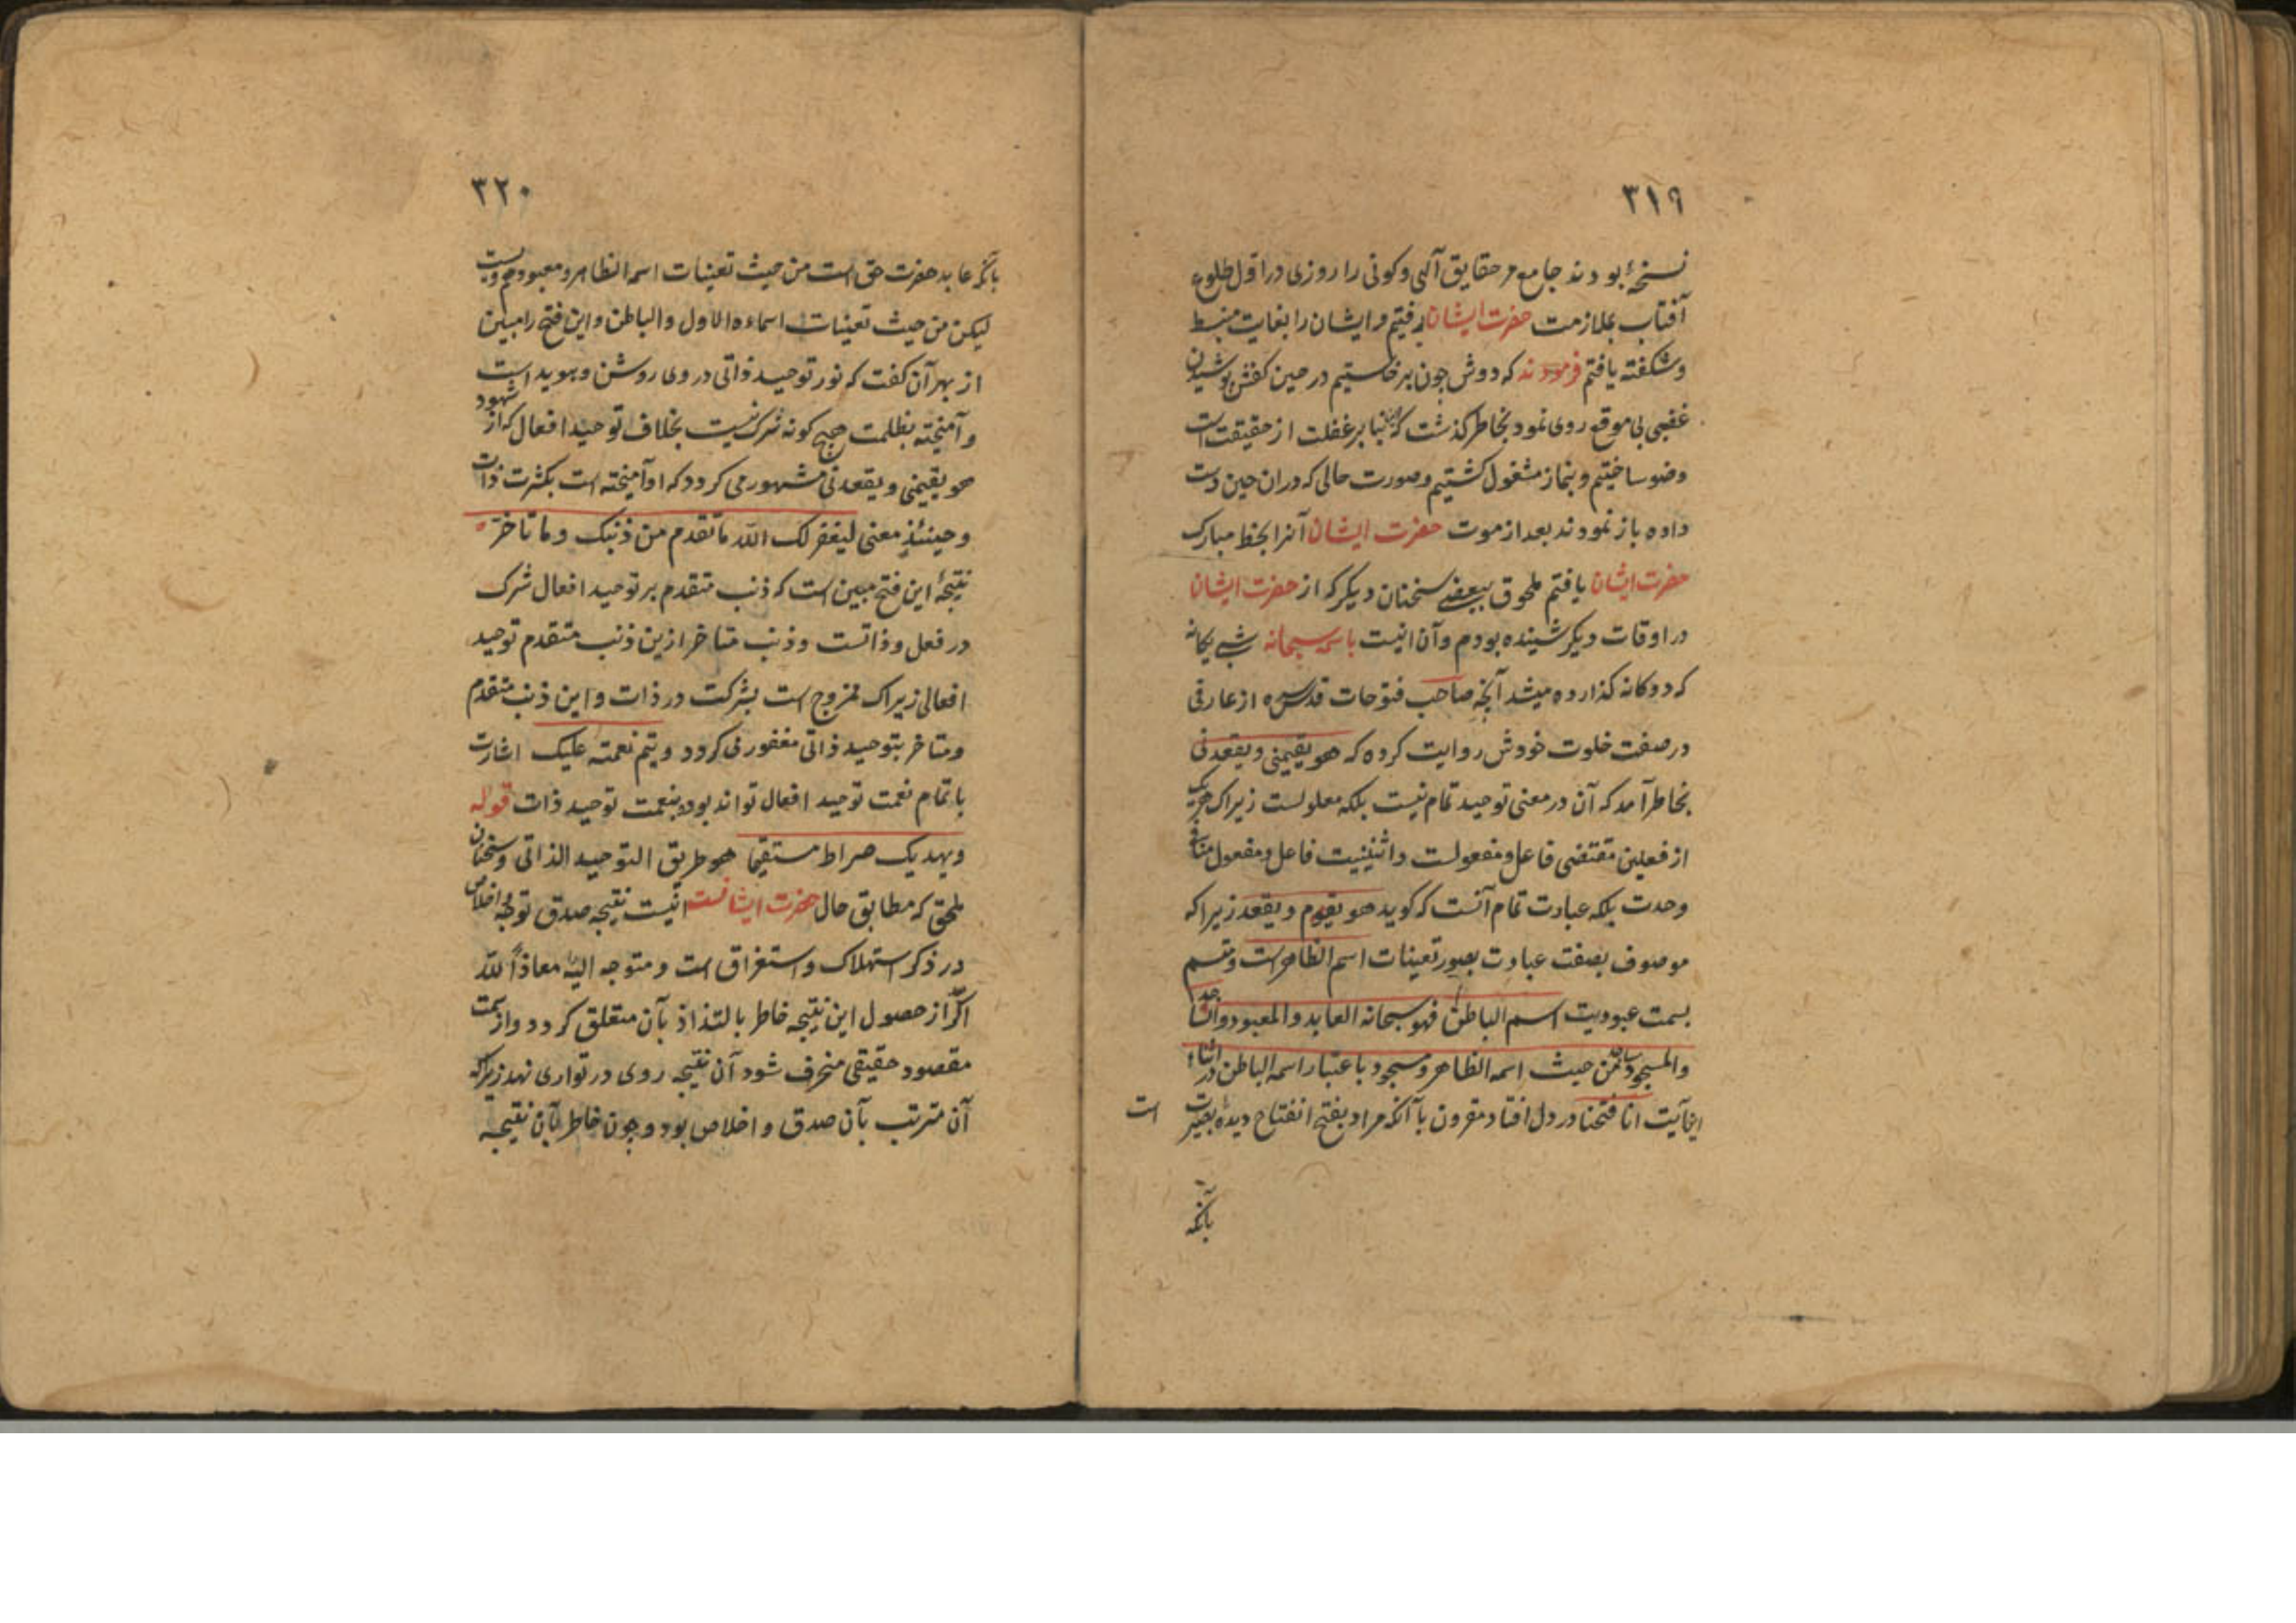 ۳۱۹
نسخهٔ بودند جامع مر حقایق آلهی و کونی را روزی در اول طلوع
آفتاب بملازمت حضرت ایشان رفتیم و ایشان را بغایت منبسط
و شکفته یافتم فرمودند که دوش چون برخاستیم در حین کفش پوشیدن
غضبی بی موقع روی نمود بخاطر گذشت که بنا بر غفلت از حقیقت است
وضو ساختیم و بنماز مشغول کشتیم و صورت حالی که دران حین دست
داده باز نمودند بعد از موت حضرت ایشان آنرا بخط مبارک
حضرت ایشان یافتم ملحوق ببعضے سخنان دیکر که از حضرت ایشان
در اوقات دیکر شنیده بودم و آن اینست باسمه سبحانه شبے یکانه
که دوکانه کذارده میشد آنچه صاحب فتوحات قدس سره از عارفی
در صفت خلوت خودش روایت کرده که هو یقیمنی و یقعدنی
بخاطر آمد که آن در معنی توحید تمام نیست بلکه معلولست زیراک هر یک
از فعلین مقتضی فاعل و مفعولست و اثنینیت فاعل و مفعول منافی
وحدت بلکه عبادت تمام آنست که کوید هو یقوم و یقعد زیرا که
موصوف بصفت عبادت بصور تعینات اسم الظاهر است و متسم
بسمت عبودیت اسم الباطن فهو سبحانه العابد و المعبود و الساجد
و المسجود ساجد من حیث اسمه الظاهر و مسجود باعتبار اسمه الباطن در اثناء
این آیت انا فتحنا در دل افتاد مقرون باآنکه مراد بفتح انفتاح دیدهٔ بصیرت است
بآنکه
۳۲۰
بآنکه عابد حضرت حق است من حیث تعینات اسمه الظاهر و معبود هم ویست
لیکن من حیث تعینات اسماءه الاول و الباطن و این فتح را مبین
از بهر آن کفت که نور توحید ذاتی در وی روشن و هویداست
و آمیخته بظلمت هیچ کونه شرک نیست بخلاف توحید افعال که از شهود
هو یقیمنی و یقعدنی مشهور می کردد که او آمیخته است بکثرت ذات
و حینئذٍ معنی لیغفر لک الله ما تقدم من ذنبک و ما تاخر
نتیجهٔ این فتح مبین است که ذنب متقدم بر توحید افعال شرک
در فعل و ذاتست و ذنب متاخر ازین ذنب متقدم توحید
افعالی زیراک ممزوج است بشرکت در ذات و این ذنب متقدم
و متاخر بتوحید ذاتی مغفور می کردد و یتم نعمته علیک اشارت
باتمام نعمت توحید افعال تواند بود بنعمت توحید ذات قوله
و یهدیک صراط مستقیما هو طریق التوحید الذاتی و سخنان
ملحق که مطابق حال حضرت ایشانست اینست نتیجه صدق توجه و اخلاص
در ذکر استهلاک و استغراق است و متوجه الیه معاذاً لله
اکر از حصول این نتیجه خاطر بالتذاذ بآن متعلق کردد و از سمت
مقصود حقیقی منحرف شود آن نتیجه روی در تواری نهد زیراکه
آن مترتب بآن صدق و اخلاص بود و چون خاطر بآن نتیجه